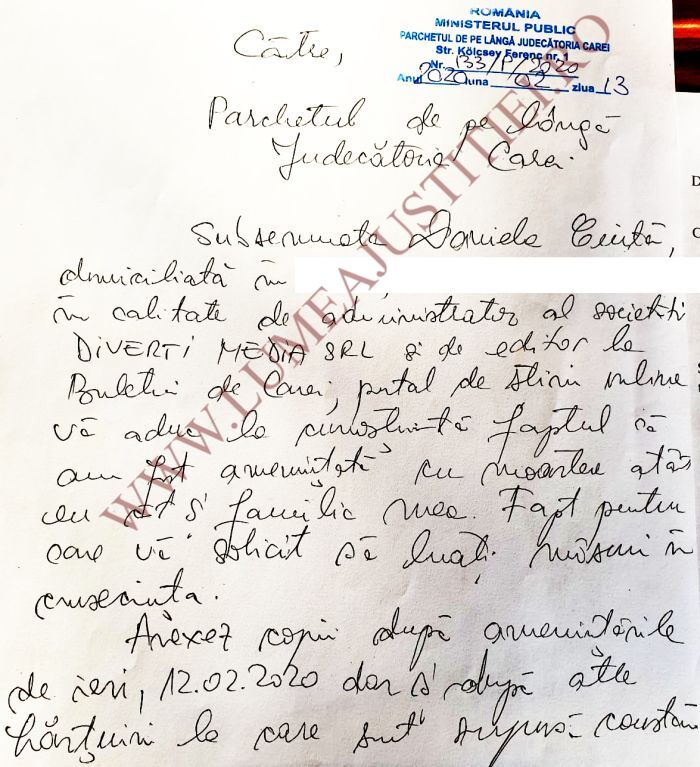 ROMÂNIA
MINISTERUL PUBLIC
PARCHETUL DE PE LÂNGĂ JUDECĂTORIA CAREI
Str. Kölcsey Ferenc nr. 1
Nr. 133/P/2020
Anul 2020 luna 02 ziua 13
Către,
Parchetul de pe lângă
Judecătoria Carei
Subsemnata Daniela Ciută,
domiciliată în
în calitate de administrator al societății
DIVERTI MEDIA SRL și de editor la
Buletin de Carei, portal de știri online
vă aduc la cunoștință faptul că
am fost amenințată cu moartea atât
eu cât și familia mea. Fapt pentru
care vă solicit să luați măsuri în
consecință.
Anexez copii după amenințările
de ieri, 12.02.2020 dar și după alte
hărțuiri la care sunt supusă
WWW.LUMEAJUSTITIEI.RO